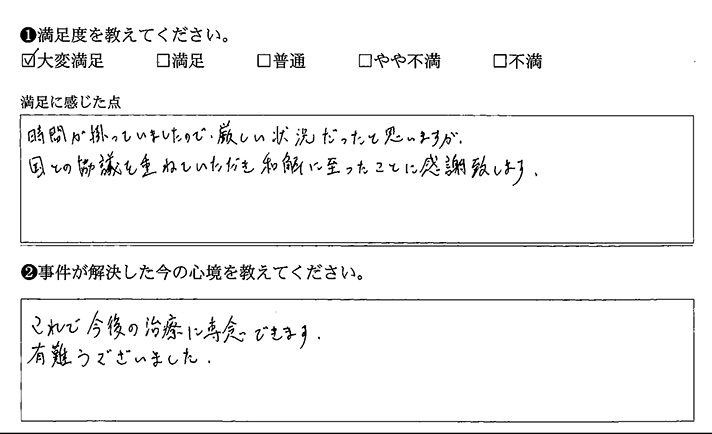 ❶満足度を教えてください。
☑大変満足 □満足 □普通 □やや不満 □不満
満足に感じた点
時間が掛っていましたので、厳しい状況だったと思いますが、
国との協議を重ねていただき和解に至ったことに感謝致します.
❷事件が解決した今の心境を教えてください。
これで今後の治療に専念できます.
有難うございました.